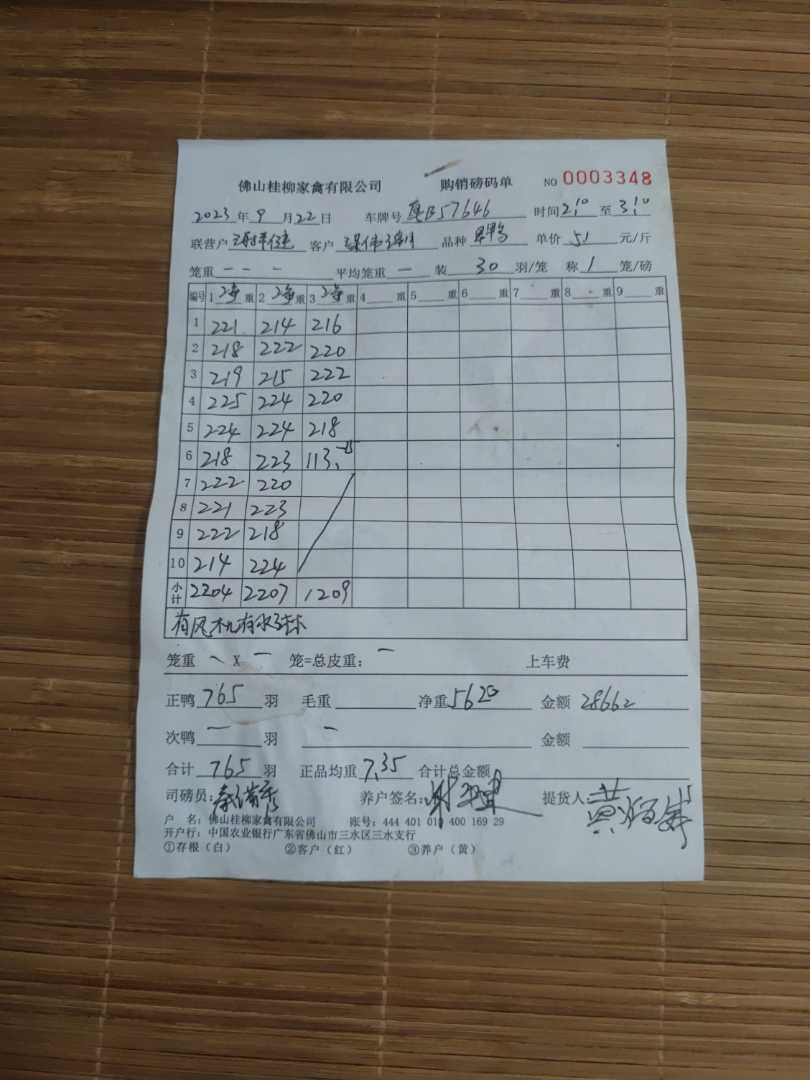 佛山桂柳家禽有限公司 购销磅码单 NO 0003348
2023年9月22日 车牌号 57646 时间2:10至3:10
联营户 客户 品种 单价 51 元/斤
笼重 — — — 平均笼重 — 装 30 羽/笼 称 1 笼/磅
编号 1 净重 2 净重 3 净重 4 重 5 重 6 重 7 重 8 重 9 重
1 221 214 216
2 218 222 220
3 219 215 222
4 225 224 220
5 224 224 218
6 218 223 113
7 222 220
8 221 223
9 222 218
10 214 224
小计 2204 2207 1209
有风机有水
笼重 — X — 笼=总皮重: — 上车费
正鸭 765 羽 毛重 净重 5620 金额 28662
次鸭 — 羽 — 金额
合计 765 羽 正品均重 7.35 合计总金额
司磅员: 养户签名: 提货人:
户 名: 佛山桂柳家禽有限公司 账号: 444 401 010 400 169 29
开户行: 中国农业银行广东省佛山市三水区三水支行
①存根(白) ②客户(红) ③养户(黄)